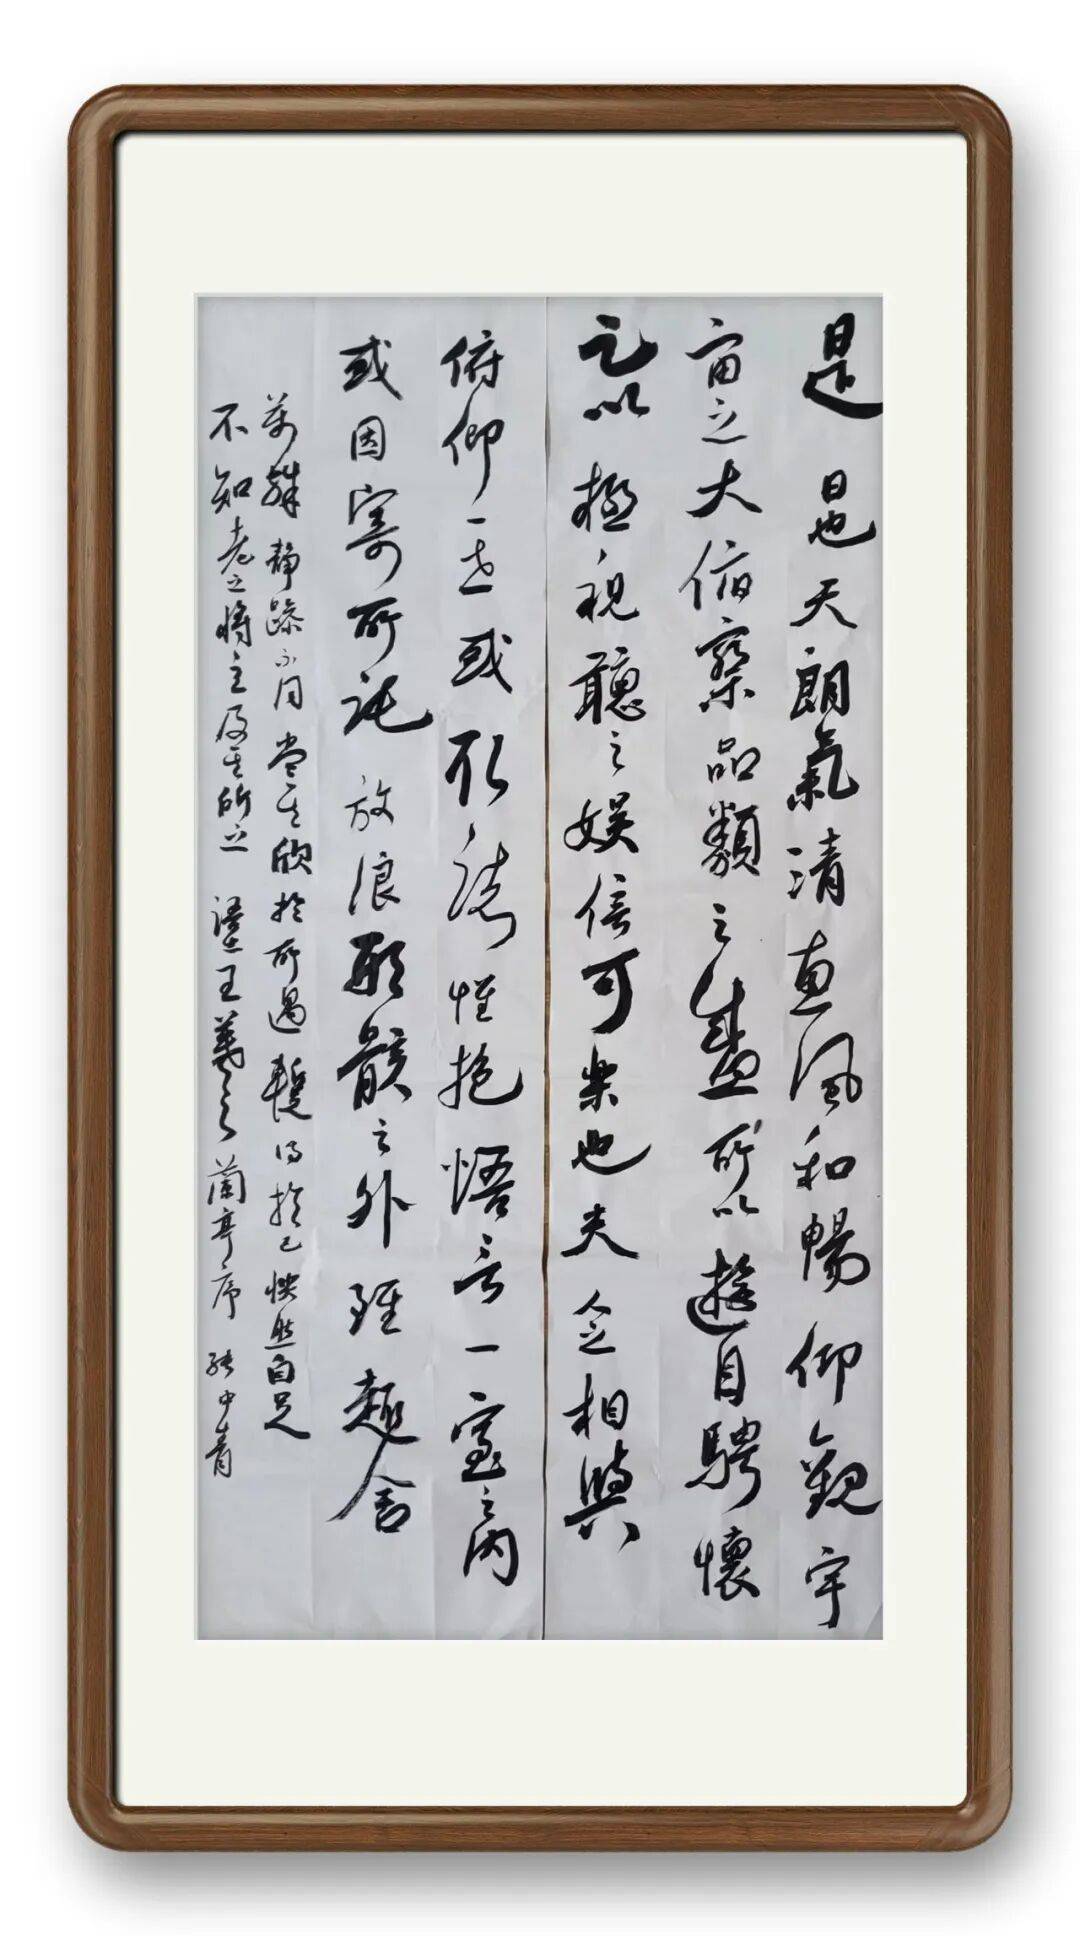 是日也天朗氣清惠風和暢仰觀宇
宙之大俯察品類之盛所以遊目騁懷
足以極視聽之娱信可樂也夫人之相與
俯仰一世或取諸懷抱悟言一室之内
或因寄所託放浪形骸之外雖趣舍
萬殊静躁不同當其欣於所遇暫得於己怏然自足
不知老之將至及其所之 王羲之蘭亭序